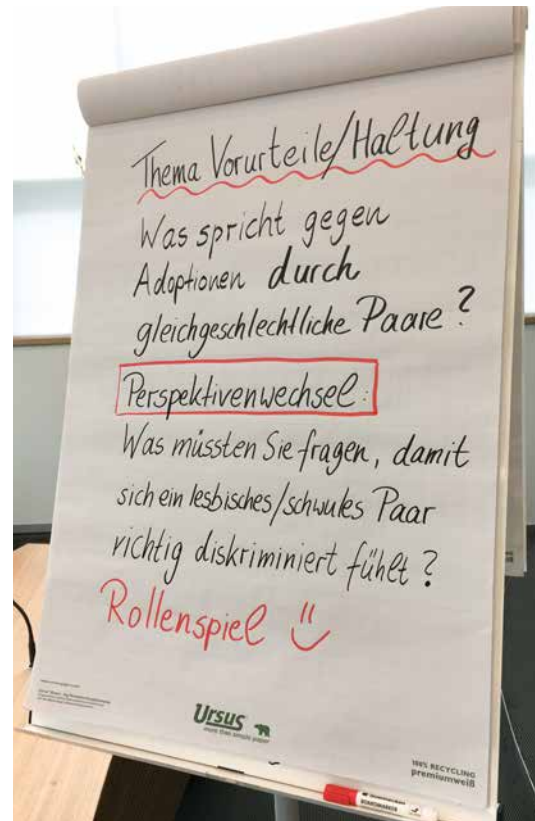 Thema Vorurteile/Haltung
Was spricht gegen
Adoptionen durch
gleichgeschlechtliche Paare?
Perspektivenwechsel:
Was müssten Sie fragen, damit
sich ein lesbisches/schwules Paar
richtig diskriminiert fühlt?
Rollenspiel
Ursus
more than simple paper
100% RECYCLING
premiumweiß
BOARDMARKER